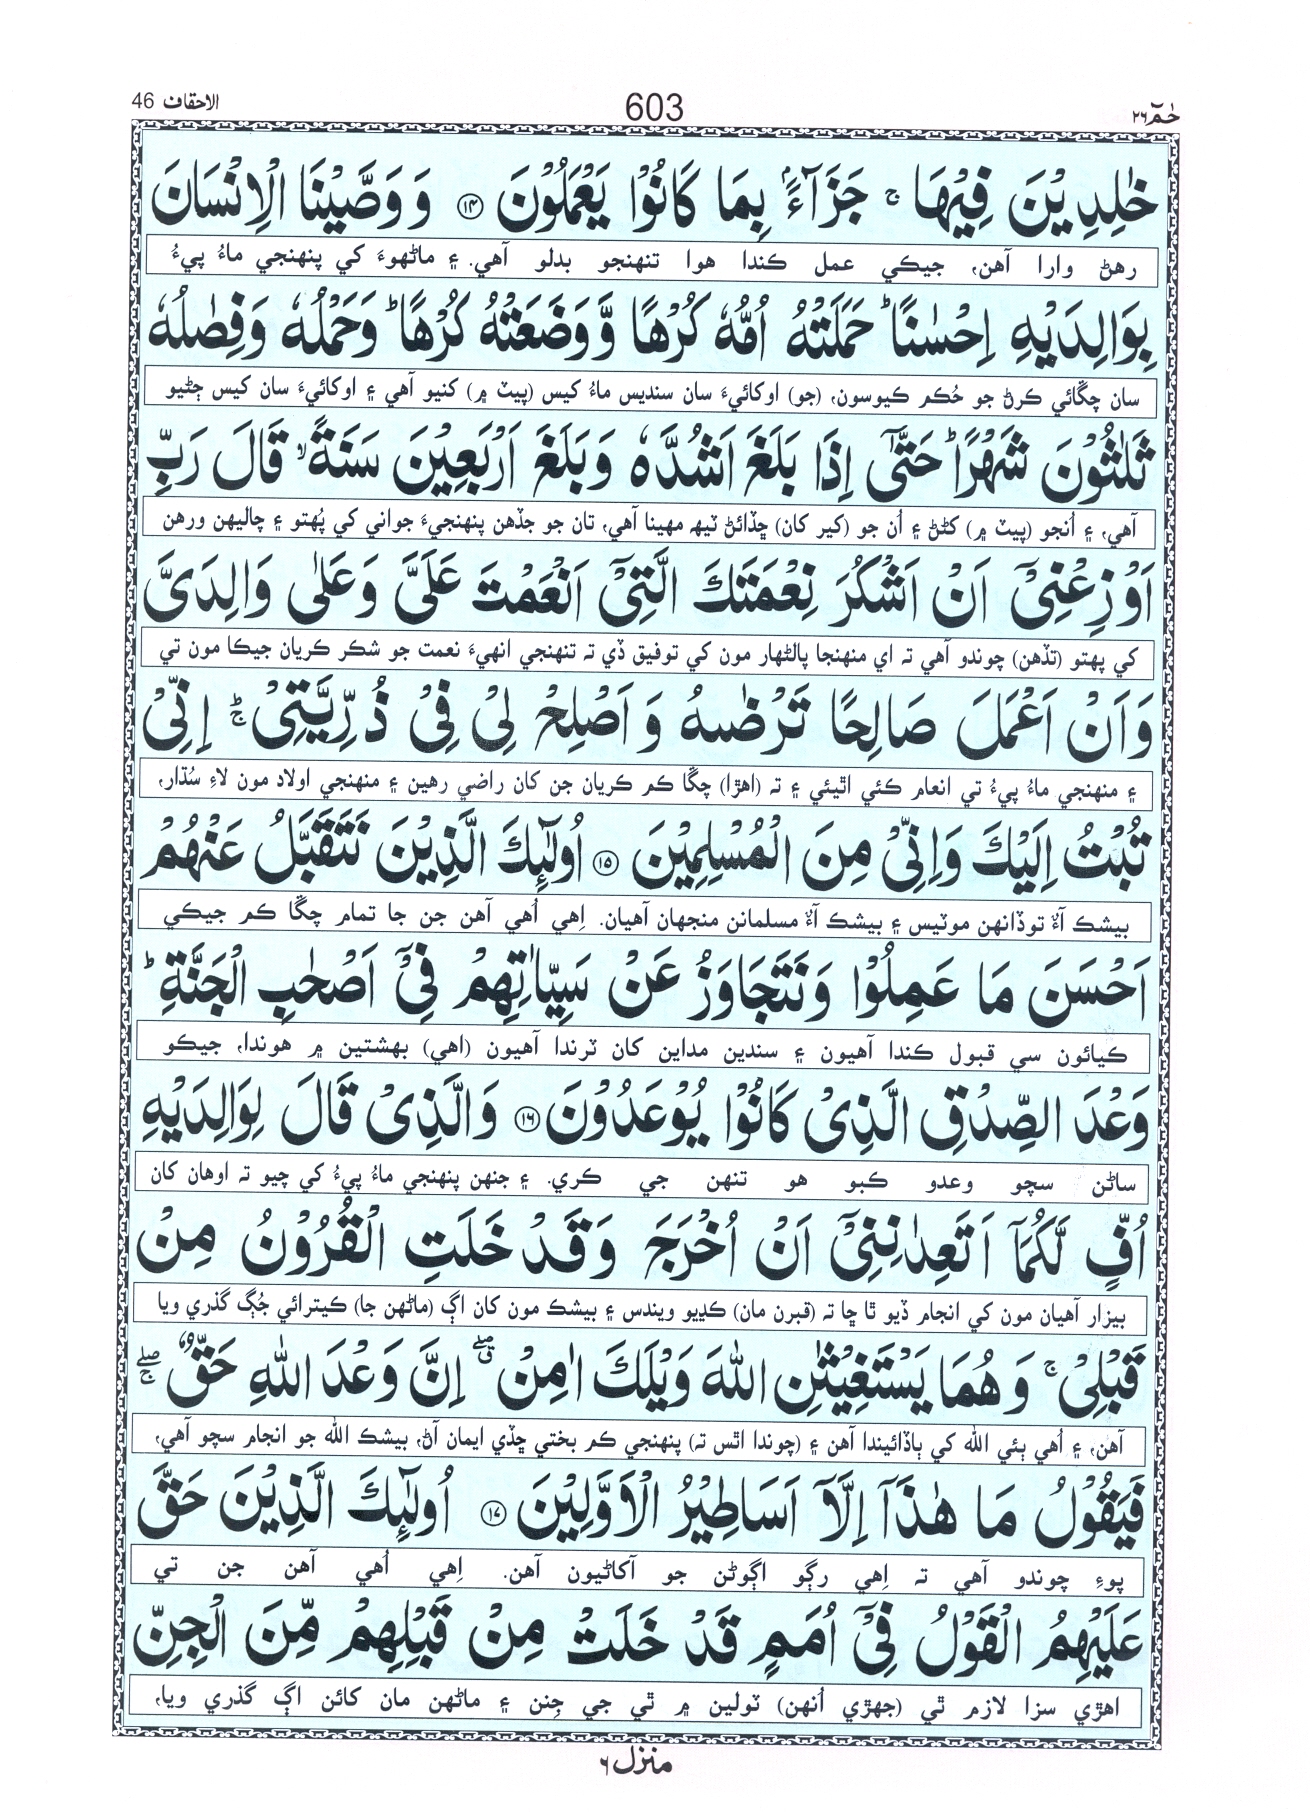 حٰمٓ ٢٦
603
الاحقاف 46
خٰلِدِيْنَ فِيْهَا ۚ جَزَآءًۢ بِمَا كَانُوْا يَعْمَلُوْنَ ﴿١٤﴾ وَ وَصَّيْنَا الْاِنْسَانَ
رهڻ وارا آهن، جيڪي عمل ڪندا هوا تنهنجو بدلو آهي. ۽ ماڻهوءَ کي پنهنجي ماءُ پيءُ
بِوَالِدَيْهِ اِحْسٰنًا ؕ حَمَلَتْهُ اُمُّهٗ كُرْهًا وَّ وَضَعَتْهُ كُرْهًا ؕ وَحَمْلُهٗ وَفِصٰلُهٗ
سان چڱائي ڪرڻ جو حُڪم ڪيوسون، (جو) اوکائيءَ سان سنديس ماءُ کيس (پيٽ ۾) کنيو آهي ۽ اوکائيءَ سان کيس ڄڻيو
ثَلٰثُوْنَ شَهْرًا ؕ حَتّٰٓى اِذَا بَلَغَ اَشُدَّهٗ وَبَلَغَ اَرْبَعِيْنَ سَنَةً ۙ قَالَ رَبِّ
آهي، ۽ اُنجو (پيٽ ۾) کڻڻ ۽ اُن جو (کير کان) ڇڏائڻ ٽيھ مهينا آهي، تان جو جڏهن پنهنجيءَ جواني کي پُهتو ۽ چاليهن ورهن
اَوْزِعْنِيْٓ اَنْ اَشْكُرَ نِعْمَتَكَ الَّتِيْٓ اَنْعَمْتَ عَلَيَّ وَعَلٰى وَالِدَيَّ
کي پهتو (تڏهن) چوندو آهي ته اي منهنجا پالڻهار مون کي توفيق ڏي ته تنهنجي انهيءَ نعمت جو شڪر ڪريان جيڪا مون تي
وَاَنْ اَعْمَلَ صَالِحًا تَرْضٰىهُ وَ اَصْلِحْ لِيْ فِيْ ذُرِّيَّتِيْ ۚؕ اِنِّيْ
۽ منهنجي ماءُ پيءُ تي انعام ڪئي اٿيئي ۽ ته (اهڙا) چڱا ڪم ڪريان جن کان راضي رهين ۽ منهنجي اولاد مون لاءِ سُڌار،
تُبْتُ اِلَيْكَ وَاِنِّيْ مِنَ الْمُسْلِمِيْنَ ﴿١٥﴾ اُولٰٓئِكَ الَّذِيْنَ نَتَقَبَّلُ عَنْهُمْ
بيشڪ آءٌ توڏانهن موٽيس ۽ بيشڪ آءٌ مسلمانن منجهان آهيان. اِهي اُهي آهن جن جا تمام چڱا ڪم جيڪي
اَحْسَنَ مَا عَمِلُوْا وَنَتَجَاوَزُ عَنْ سَيِّاٰتِهِمْ فِيْٓ اَصْحٰبِ الْجَنَّةِ ؕ
ڪيائون سي قبول ڪندا آهيون ۽ سندين مداين کان ٽرندا آهيون (اهي) بهشتين ۾ هوندا، جيڪو
وَعْدَ الصِّدْقِ الَّذِيْ كَانُوْا يُوْعَدُوْنَ ﴿١٦﴾ وَالَّذِيْ قَالَ لِوَالِدَيْهِ
ساڻن سچو وعدو ڪبو هو تنهن جي ڪري. ۽ جنهن پنهنجي ماءُ پيءُ کي چيو ته اوهان کان
اُفٍّ لَّكُمَآ اَتَعِدٰنِنِيْٓ اَنْ اُخْرَجَ وَقَدْ خَلَتِ الْقُرُوْنُ مِنْ
بيزار آهيان مون کي انجام ڏيو ٿا ڇا ته (قبرن مان) ڪڍيو ويندس ۽ بيشڪ مون کان اڳ (ماڻهن جا) ڪيترائي جُڳ گذري ويا
قَبْلِيْ ۚ وَ هُمَا يَسْتَغِيْثٰنِ اللّٰهَ وَيْلَكَ اٰمِنْ ۖۗ اِنَّ وَعْدَ اللّٰهِ حَقٌّ ۖۚ
آهن، ۽ اُهي ٻئي الله کي ٻاڏائيندا آهن ۽ (چوندا اٿس ته) پنهنجي ڪم بختي ڇڏي ايمان آڻ، بيشڪ الله جو انجام سچو آهي،
فَيَقُوْلُ مَا هٰذَآ اِلَّآ اَسَاطِيْرُ الْاَوَّلِيْنَ ﴿١٧﴾ اُولٰٓئِكَ الَّذِيْنَ حَقَّ
پوءِ چوندو آهي ته اِهي رڳو اڳوڻن جو آکاڻيون آهن. اِهي اُهي آهن جن تي
عَلَيْهِمُ الْقَوْلُ فِيْٓ اُمَمٍ قَدْ خَلَتْ مِنْ قَبْلِهِمْ مِّنَ الْجِنِّ
اهڙي سزا لازم ٿي (جهڙي اُنهن) ٽولين ۾ ٿي جي جِنن ۽ ماڻهن مان کائن اڳ گذري ويا،
منزل ٦